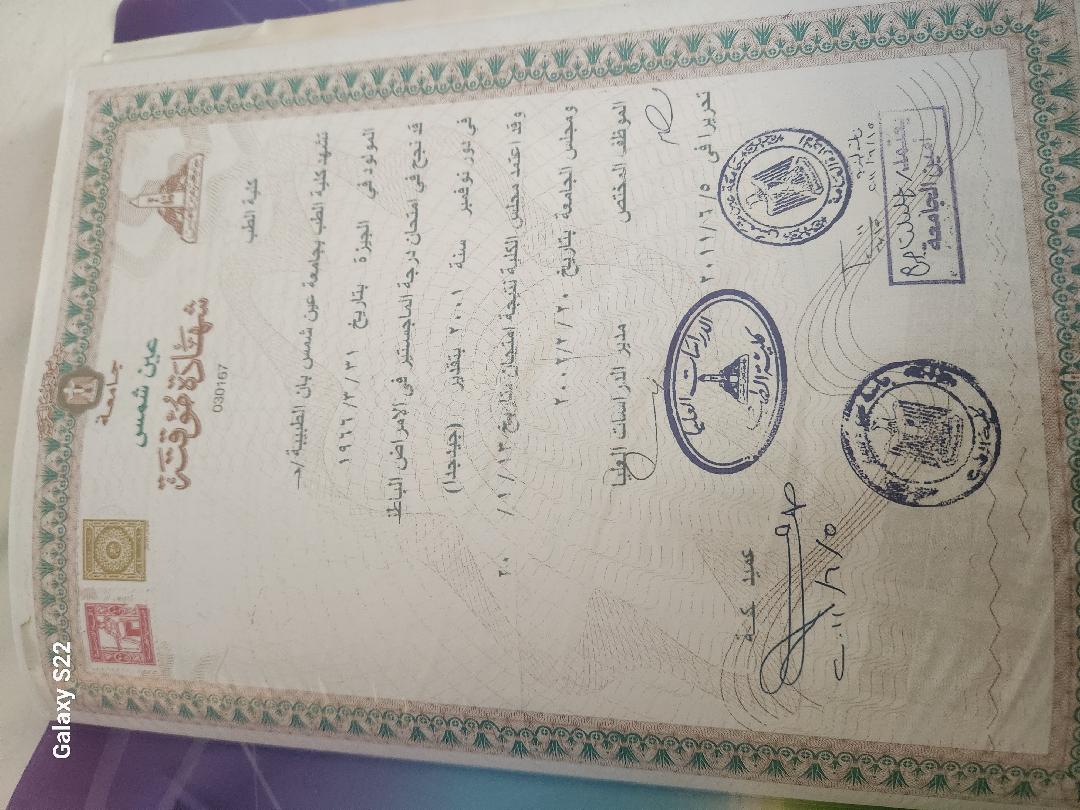 جامعة
عين شمس
شهادة مؤقتة
030167
كلية الطب
تشهد كلية الطب بجامعة عين شمس بأن الطبيبة /
المولود في الجيزة بتاريخ ١٩٦٦/٣/٣١
قد نجح في امتحان درجة الماجستير في الامراض الباط
في دور نوفمبر سنة ٢٠٠١ بتقدير (جيدجدا)
وقد اعتمد مجلس الكلية نتيجة امتحان بتاريخ ١/١٣/ ٢٠
ومجلس الجامعة بتاريخ ٢٠٠٢/٢/٢٠
الموظف المختص مدير الدراسات العليا
تحريرا في ٢٠١١/٦/٥
عميد
٢٠١١/٦/٥
الدراسات العليا
كلية الطب
يعتمد،
أمين الجامعة
Galaxy S22